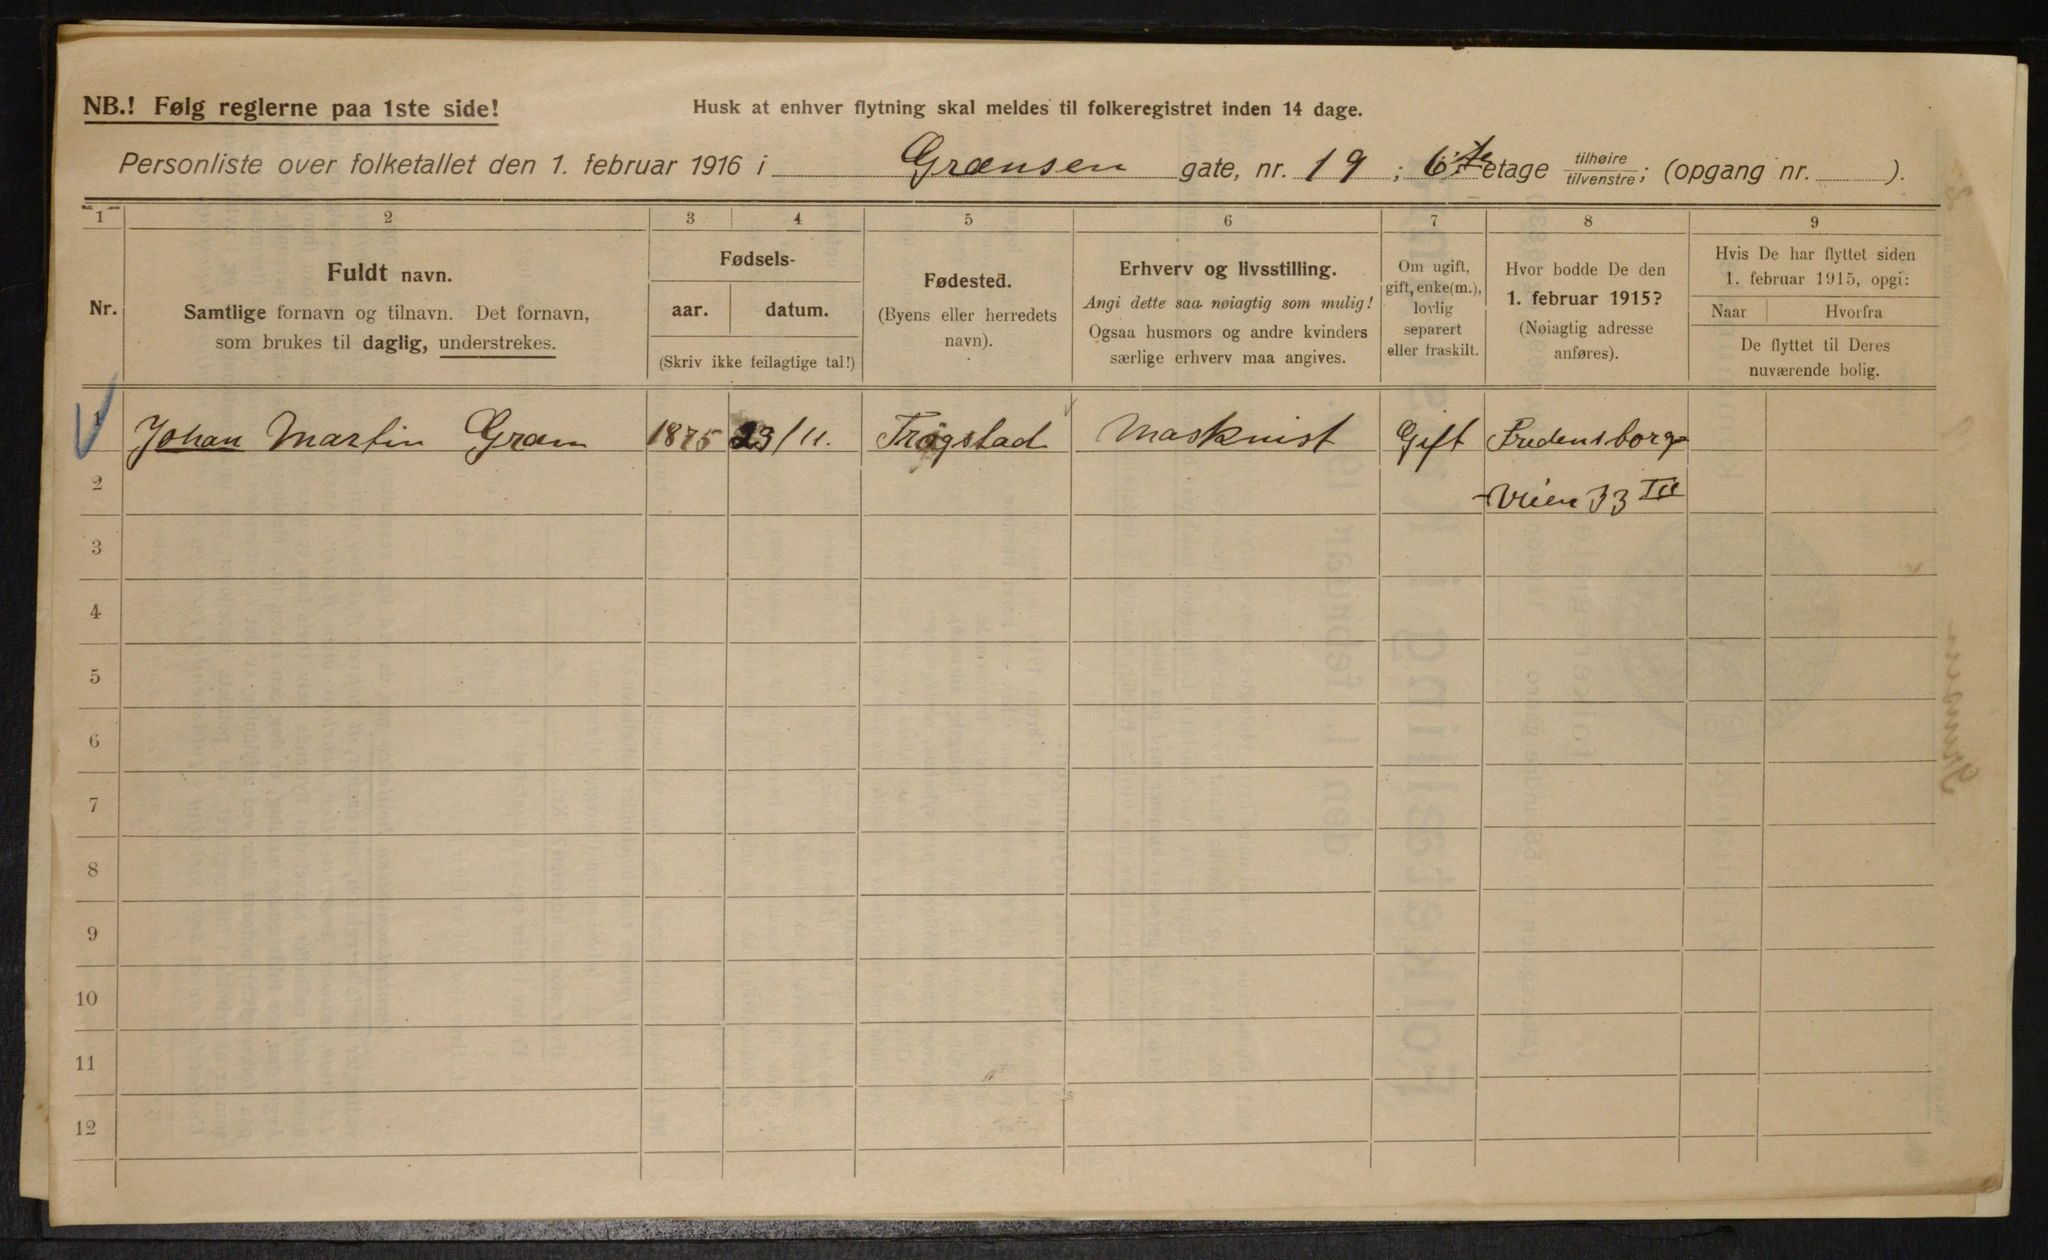 NB.! Følg reglerne paa 1ste side!
Husk at enhver flytning skal meldes til folkeregistret inden 14 dage.
Personliste over folketallet den 1. februar 1916 i Grænsen gate, nr. 19 ; 6te etage tilhøire / tilvenstre; (opgang nr. ).
1 2 3 4 5 6 7 8 9
Nr.
Fuldt navn.
Samtlige fornavn og tilnavn. Det fornavn,
som brukes til daglig, understrekes.
Fødsels-
aar. datum.
(Skriv ikke feilagtige tal!)
Fødested.
(Byens eller herredets
navn).
Erhverv og livsstilling.
Angi dette saa nøiagtig som mulig!
Ogsaa husmors og andre kvinders
særlige erhverv maa angives.
Om ugift,
gift, enke(m.),
lovlig
separert
eller fraskilt.
Hvor bodde De den
1. februar 1915?
(Nøiagtig adresse
anføres).
Hvis De har flyttet siden
1. februar 1915, opgi:
Naar Hvorfra
De flyttet til Deres
nuværende bolig.
1 Johan Martin Gram 1875 23/11. Trøgstad Maskinist Gift Fredensborg-
2 -veien 33 III
3
4
5
6
7
8
9
10
11
12